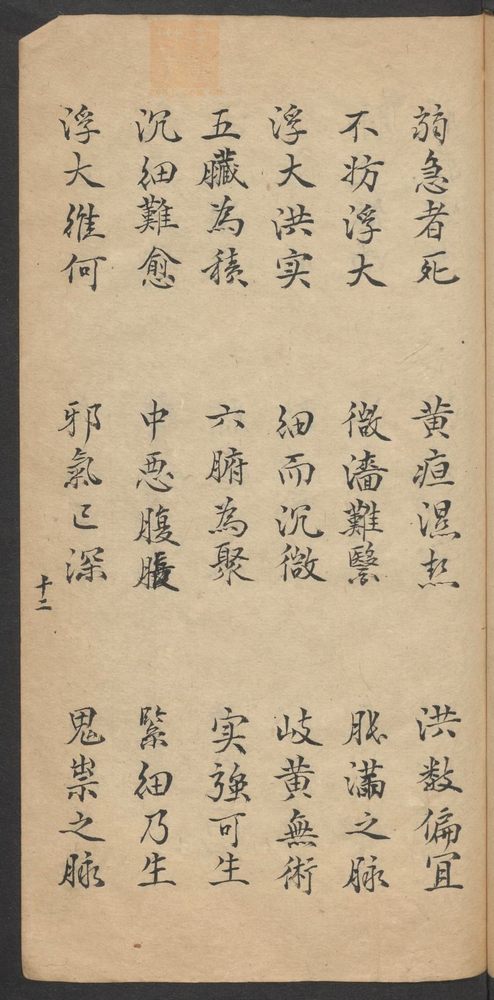 弱急者死 黄疸濕热 洪数偏宜
不妨浮大 微濇難醫 胀滿之脉
浮大洪实 細而沉微 岐黄無術
五臟為積 六腑為聚 实強可生
沉細難愈 中恶腹脹 緊細乃生
浮大維何 邪氣已深 鬼祟之脉
十二